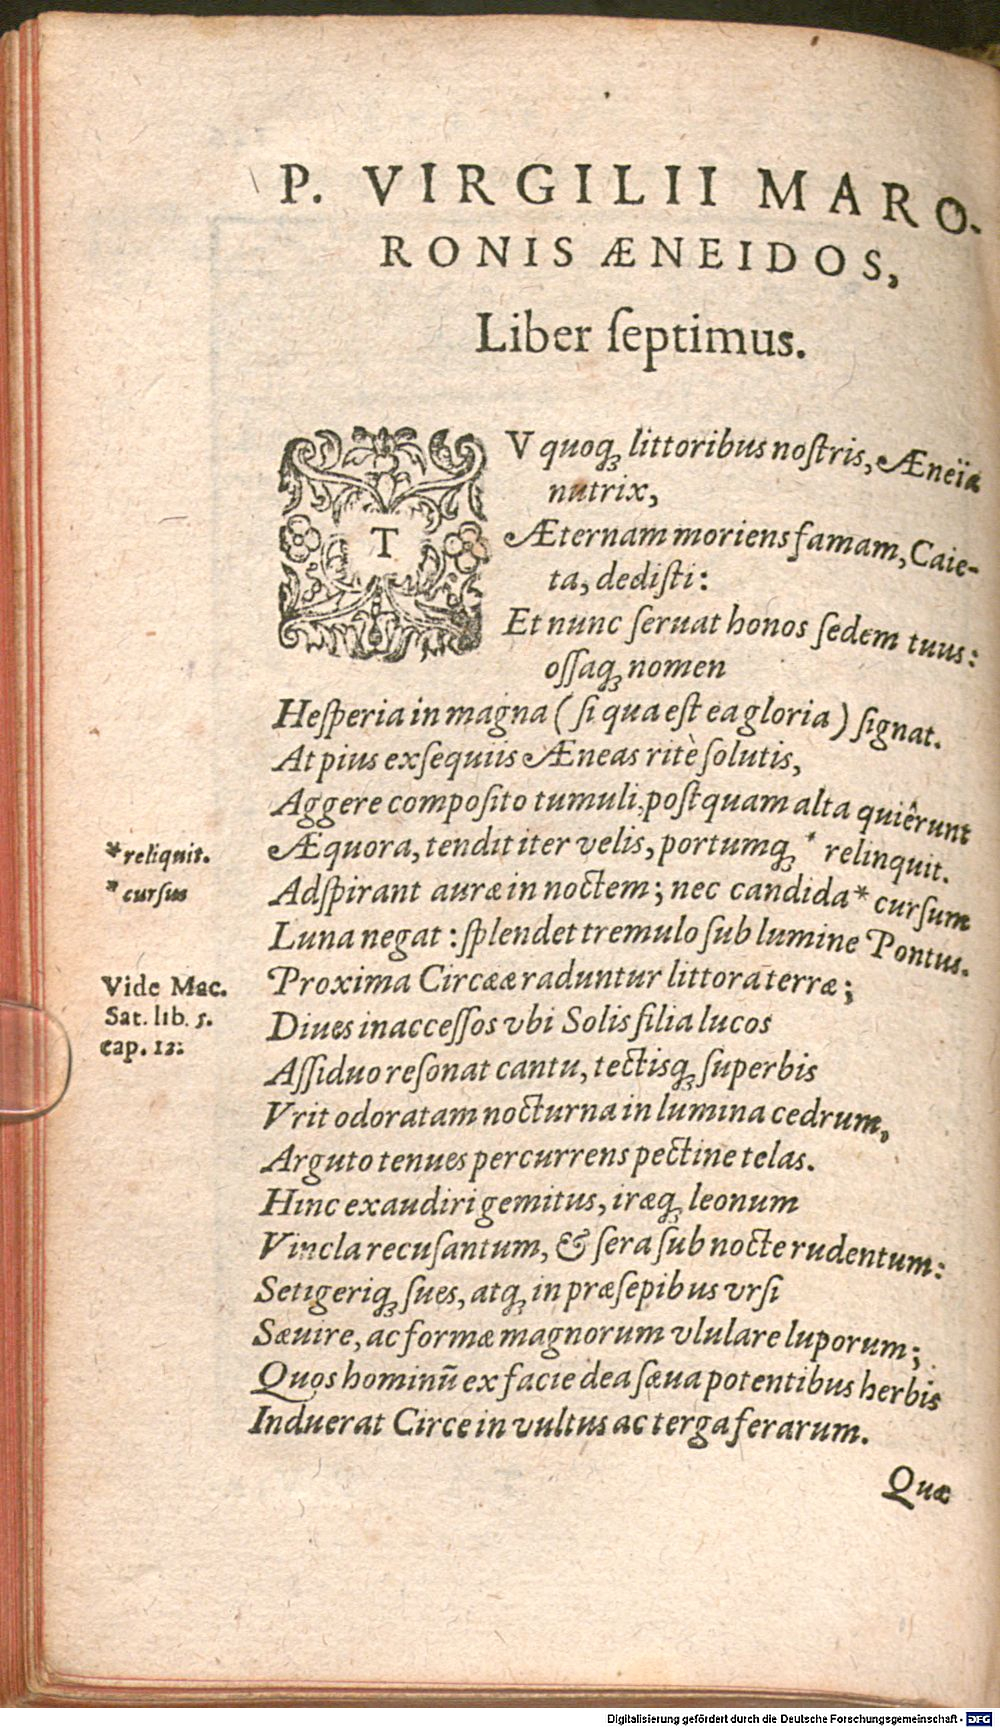 P. VIRGILII MARO-
RONIS ÆNEIDOS,
Liber ſeptimus.
TV quoqꝫ littoribus noſtris, Æneïa
nutrix,
Æternam moriens famam, Caie-
ta, dediſti:
Et nunc ſeruat honos ſedem tuus:
oſſaqꝫ nomen
Heſperia in magna (ſi qua eſt ea gloria) ſignat.
At pius exſequiis Æneas ritè ſolutis,
Aggere compoſito tumuli, poſtquam alta quiêrunt
Æquora, tendit iter velis, portumqꝫ * relinquit.
*reliquit.
Adſpirant auræ in noctem; nec candida * curſum
* curſus
Luna negat: ſplendet tremulo ſub lumine Pontus.
Proxima Circææ raduntur littora terræ;
Vide Mac.
Sat. lib. 5.
cap. 12:
Diues inacceſſos vbi Solis filia lucos
Aſſiduo reſonat cantu, tectisqꝫ ſuperbis
Vrit odoratam nocturna in lumina cedrum,
Arguto tenues percurrens pectine telas.
Hinc exaudiri gemitus, iræqꝫ leonum
Vincla recuſantum, & ſera ſub nocte rudentum:
Setigeriqꝫ ſues, atqꝫ in præſepibus vrſi
Sæuire, ac formæ magnorum vlulare luporum;
Quos hominū ex facie dea ſæua potentibus herbis
Induerat Circe in vultus ac terga ferarum.
Quæ
Digitalisierung gefördert durch die Deutsche Forschungsgemeinschaft - DFG